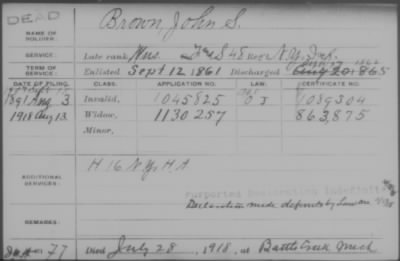 DEAD
NAME OF SOLDIER: Brown, John S.
SERVICE: Late rank, Mus. F & S 48 Reg't N.Y. Inf.
TERM OF SERVICE: Enlisted Sept 12, 1861 Discharged Aug 20, 1865
DATE OF FILING. CLASS. APPLICATION NO. LAW. CERTIFICATE NO.
1891 Aug 3 Invalid, 1045825 1089304
1918 Aug 13 Widow, 1130257 863,875
Minor,
ADDITIONAL SERVICES: H 16 N.Y. H A
purported Declaration indefinite
Declaration made
REMARKS:
77 Died July 28, 1918, at Battle Creek Mich